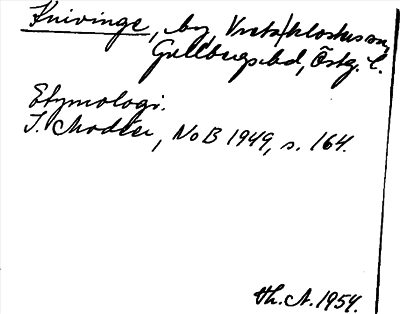 Knivinge, by, Vreta klosters sn,
Gullbergs hd, Östg. l.
Etymologi.
I. Modéer, NoB 1949, s. 164.
Th. A. 1954.